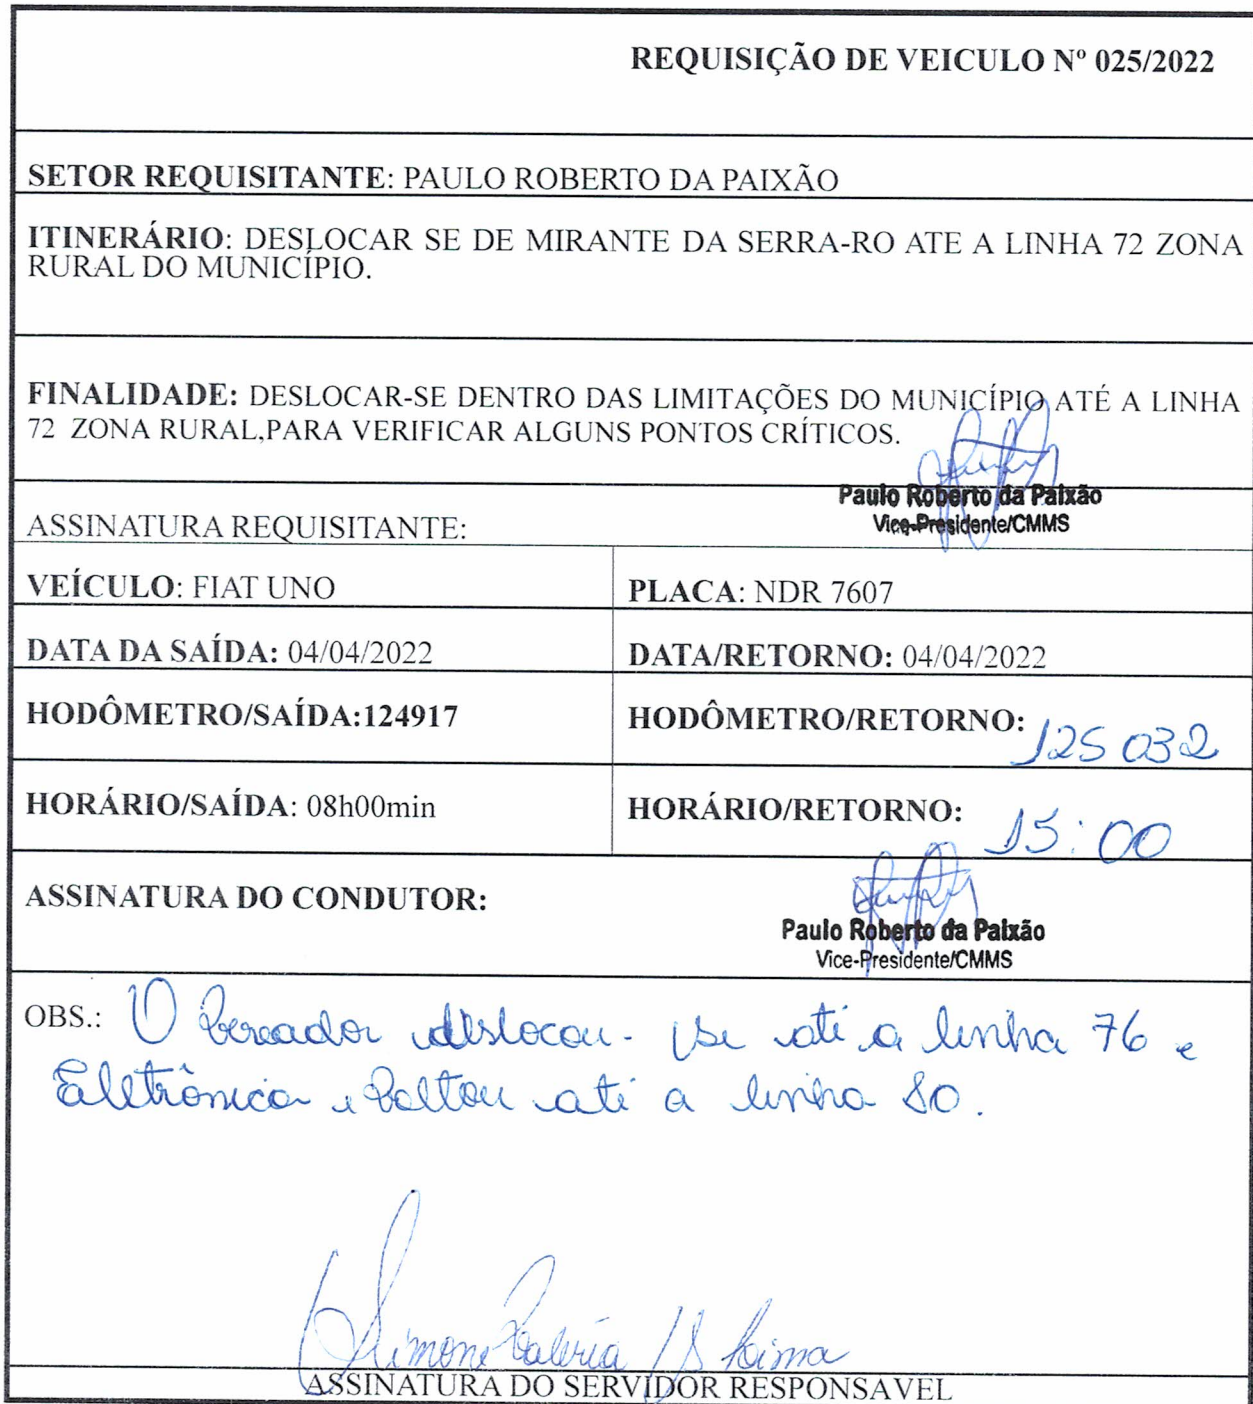 REQUISIÇÃO DE VEICULO Nº 025/2022
SETOR REQUISITANTE: PAULO ROBERTO DA PAIXÃO
ITINERÁRIO: DESLOCAR SE DE MIRANTE DA SERRA-RO ATE A LINHA 72 ZONA
RURAL DO MUNICÍPIO.
FINALIDADE: DESLOCAR-SE DENTRO DAS LIMITAÇÕES DO MUNICÍPIO ATÉ A LINHA
72 ZONA RURAL,PARA VERIFICAR ALGUNS PONTOS CRÍTICOS.
Paulo Roberto da Paixão
Vice-Presidente/CMMS
ASSINATURA REQUISITANTE:
VEÍCULO: FIAT UNO PLACA: NDR 7607
DATA DA SAÍDA: 04/04/2022 DATA/RETORNO: 04/04/2022
HODÔMETRO/SAÍDA:124917 HODÔMETRO/RETORNO: 125032
HORÁRIO/SAÍDA: 08h00min HORÁRIO/RETORNO: 15:00
ASSINATURA DO CONDUTOR:
Paulo Roberto da Paixão
Vice-Presidente/CMMS
OBS.: O Vereador deslocou-se até a linha 76 e
Eletrônica e Voltou até a linha 80.
Simone Valéria
ASSINATURA DO SERVIDOR RESPONSAVEL